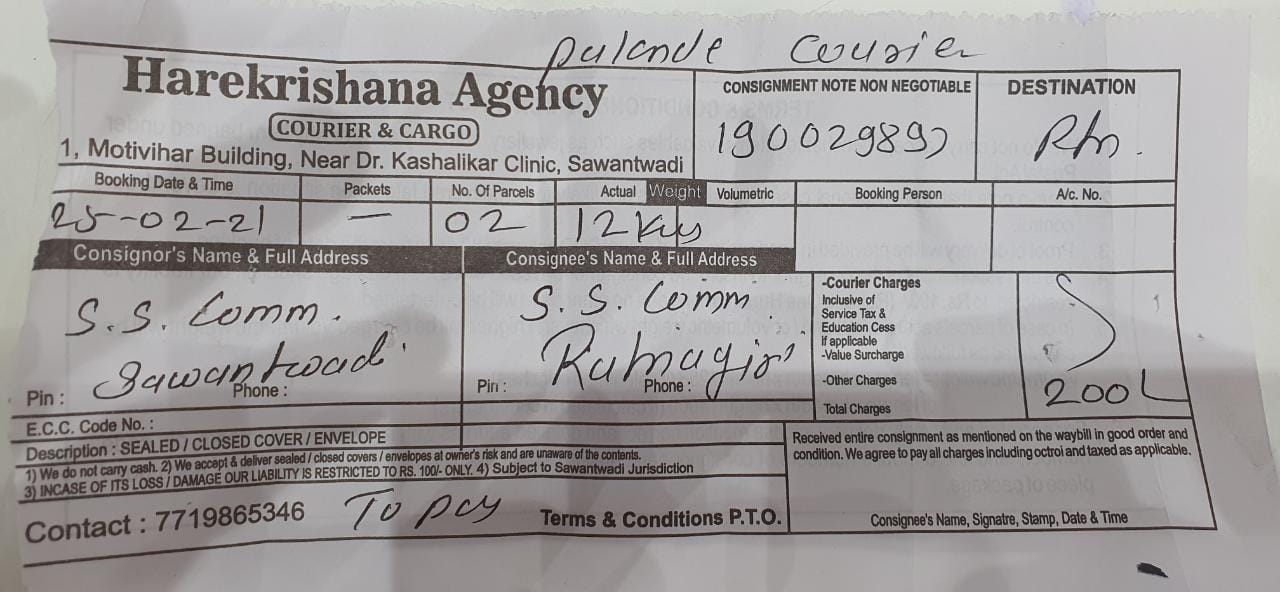 Palande Courier
Harekrishana Agency
COURIER & CARGO
1, Motivihar Building, Near Dr. Kashalikar Clinic, Sawantwadi
CONSIGNMENT NOTE NON NEGOTIABLE
DESTINATION
Rtn.
Booking Date & Time Packets No. Of Parcels Actual Weight Volumetric Booking Person A/c. No.
25-02-21 — 02 12 Kgs
Consignor's Name & Full Address
S.S. Comm.
Sawantwadi
Pin : Phone :
Consignee's Name & Full Address
S.S. Comm
Ratnagiri
Pin : Phone :
-Courier Charges
Inclusive of
Service Tax &
Education Cess
If applicable
-Value Surcharge
-Other Charges
Total Charges
200
E.C.C. Code No. :
Description : SEALED / CLOSED COVER / ENVELOPE
1) We do not carry cash. 2) We accept & deliver sealed / closed covers / envelopes at owner's risk and are unaware of the contents.
3) INCASE OF ITS LOSS / DAMAGE OUR LIABILITY IS RESTRICTED TO RS. 100/- ONLY. 4) Subject to Sawantwadi Jurisdiction
Contact : 7719865346 To pay Terms & Conditions P.T.O.
Received entire consignment as mentioned on the waybill in good order and
condition. We agree to pay all charges including octroi and taxed as applicable.
Consignee's Name, Signatre, Stamp, Date & Time